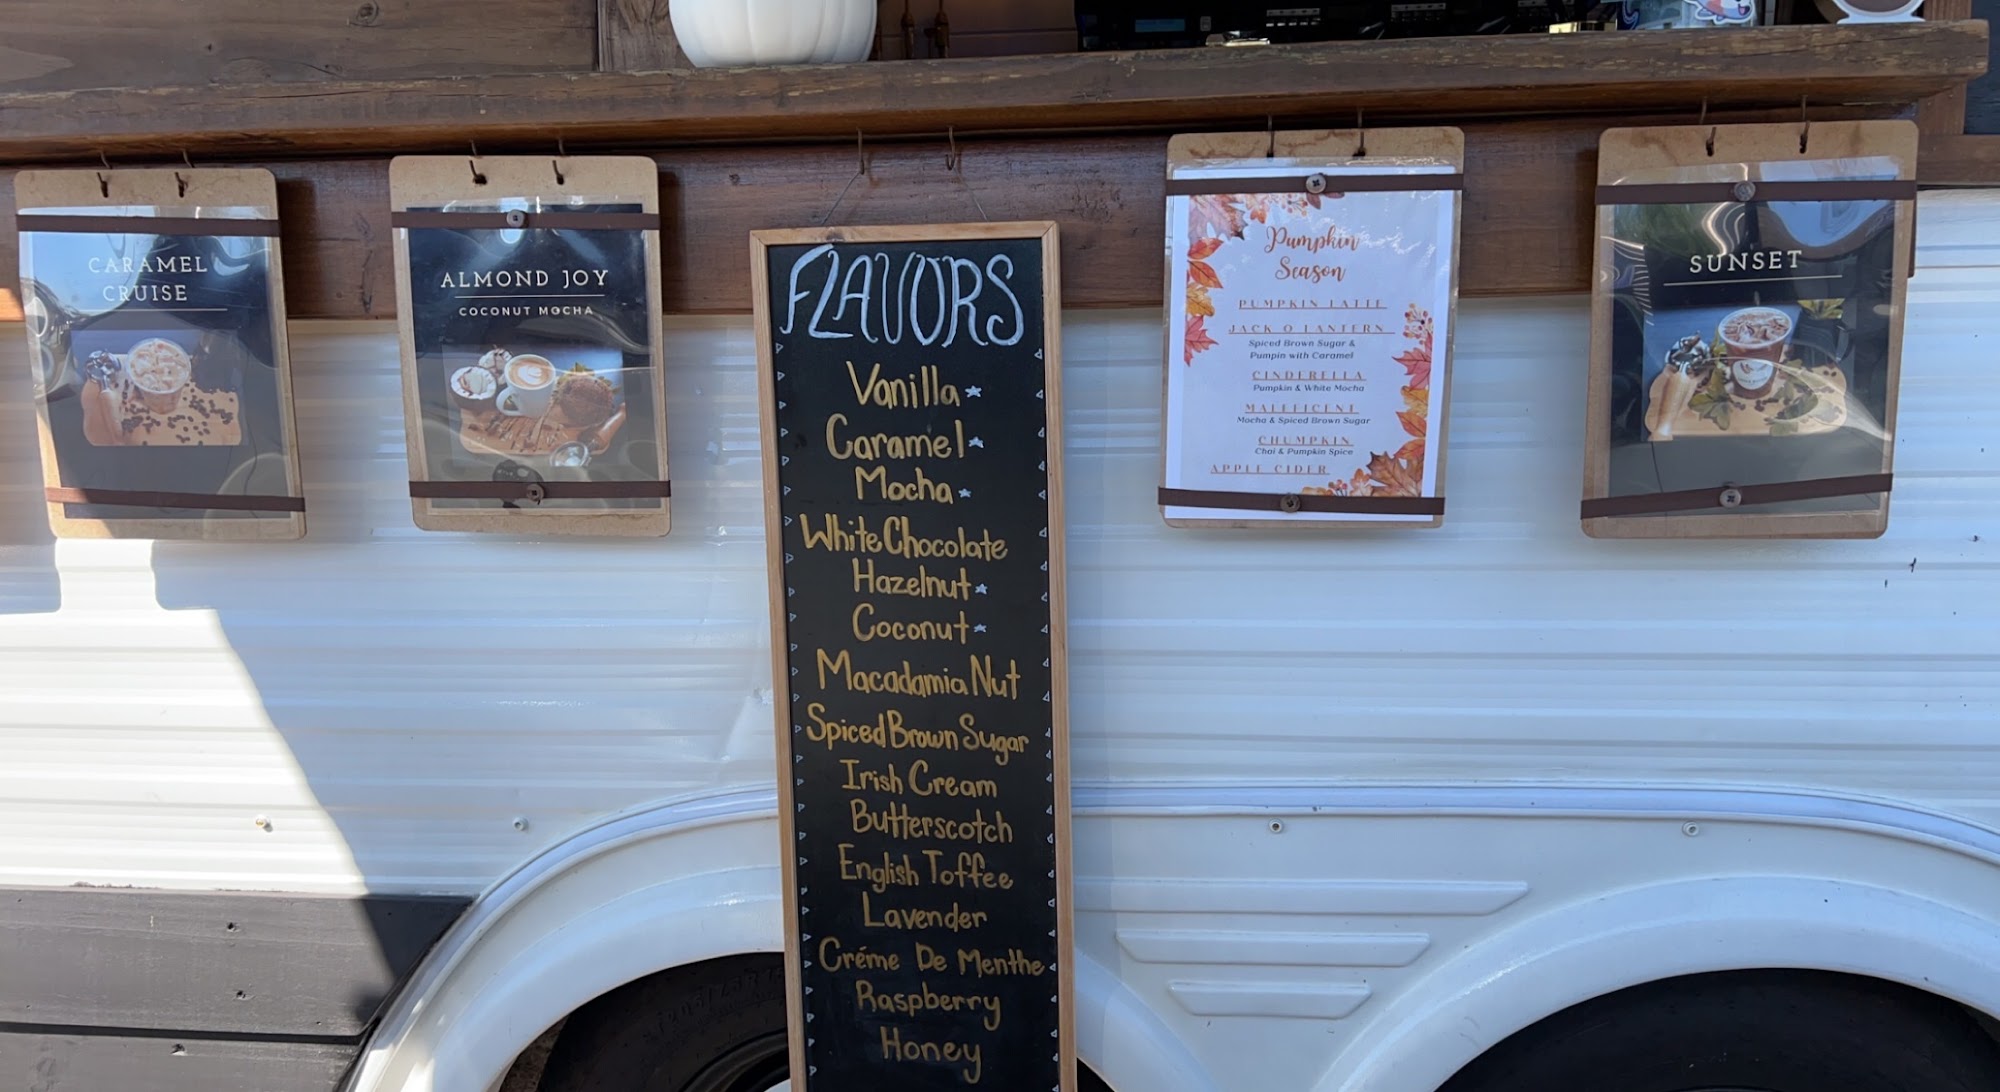 CARAMEL
CRUISE
ALMOND JOY
COCONUT MOCHA
FLAVORS
Vanilla
Caramel
Mocha
White Chocolate
Hazelnut
Coconut
Macadamia Nut
Spiced Brown Sugar
Irish Cream
Butterscotch
English Toffee
Lavender
Créme De Menthe
Raspberry
Honey
Pumpkin
Season
PUMPKIN LATTE
JACK O LANTERN
Spiced Brown Sugar &
Pumpin with Caramel
CINDERELLA
Pumpkin & White Mocha
MALEFICENT
Mocha & Spiced Brown Sugar
CHUMPKIN
Chai & Pumpkin Spice
APPLE CIDER
SUNSET